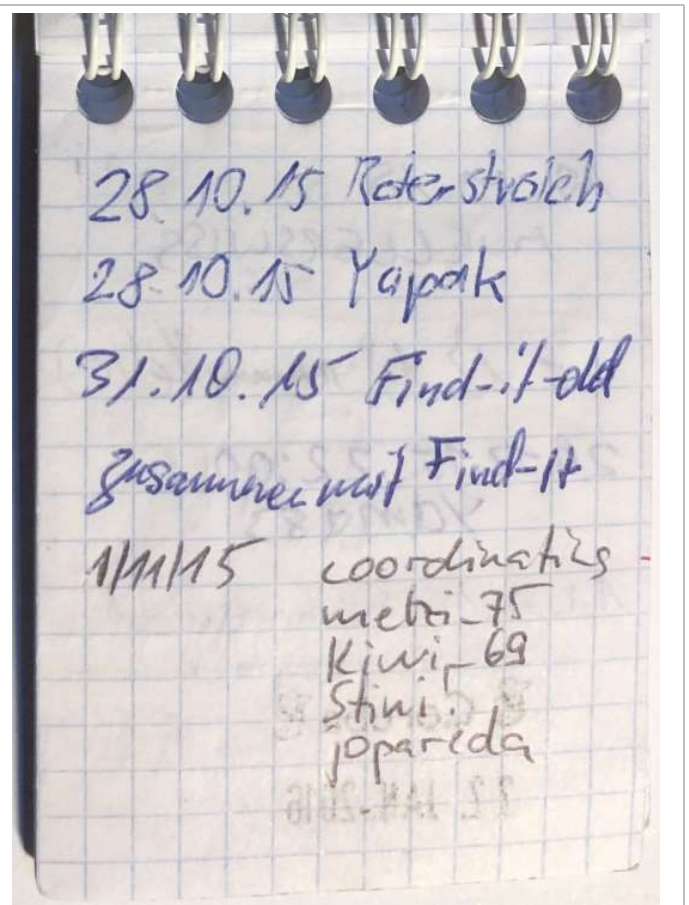 28.10.15 Roterstrolch
28.10.15 Yapork
31.10.15 Find-it-old
zusammen mit Find-It
1/11/15 coordinatixs
metzi_75
Kiwi_69
Stini!
jopareda
22. JAN. 2016